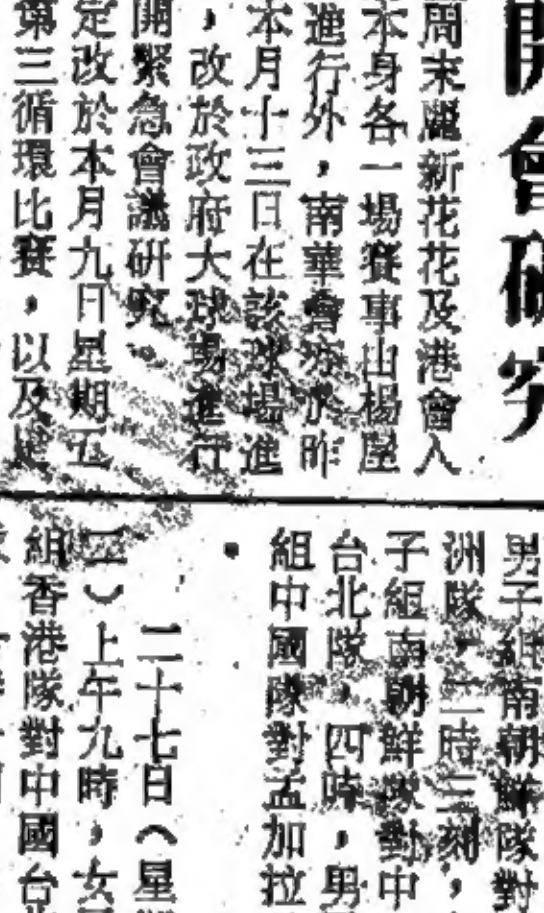 開會研究
周末麗新花花及港會入
本身各一場賽事由楊屋
進行外，南華會亦於昨
本月十三日在該球場進
，改於政府大球場進行
開緊急會議研究。
定改於本月九日星期五
第三循環比賽，以及
男子組南朝鮮隊對
洲隊，二時三刻，
子組南朝鮮隊對中
台北隊，四時，男
組中國隊對孟加拉
。
二十七日（星期
三）上午九時，女子
組香港隊對中國台北